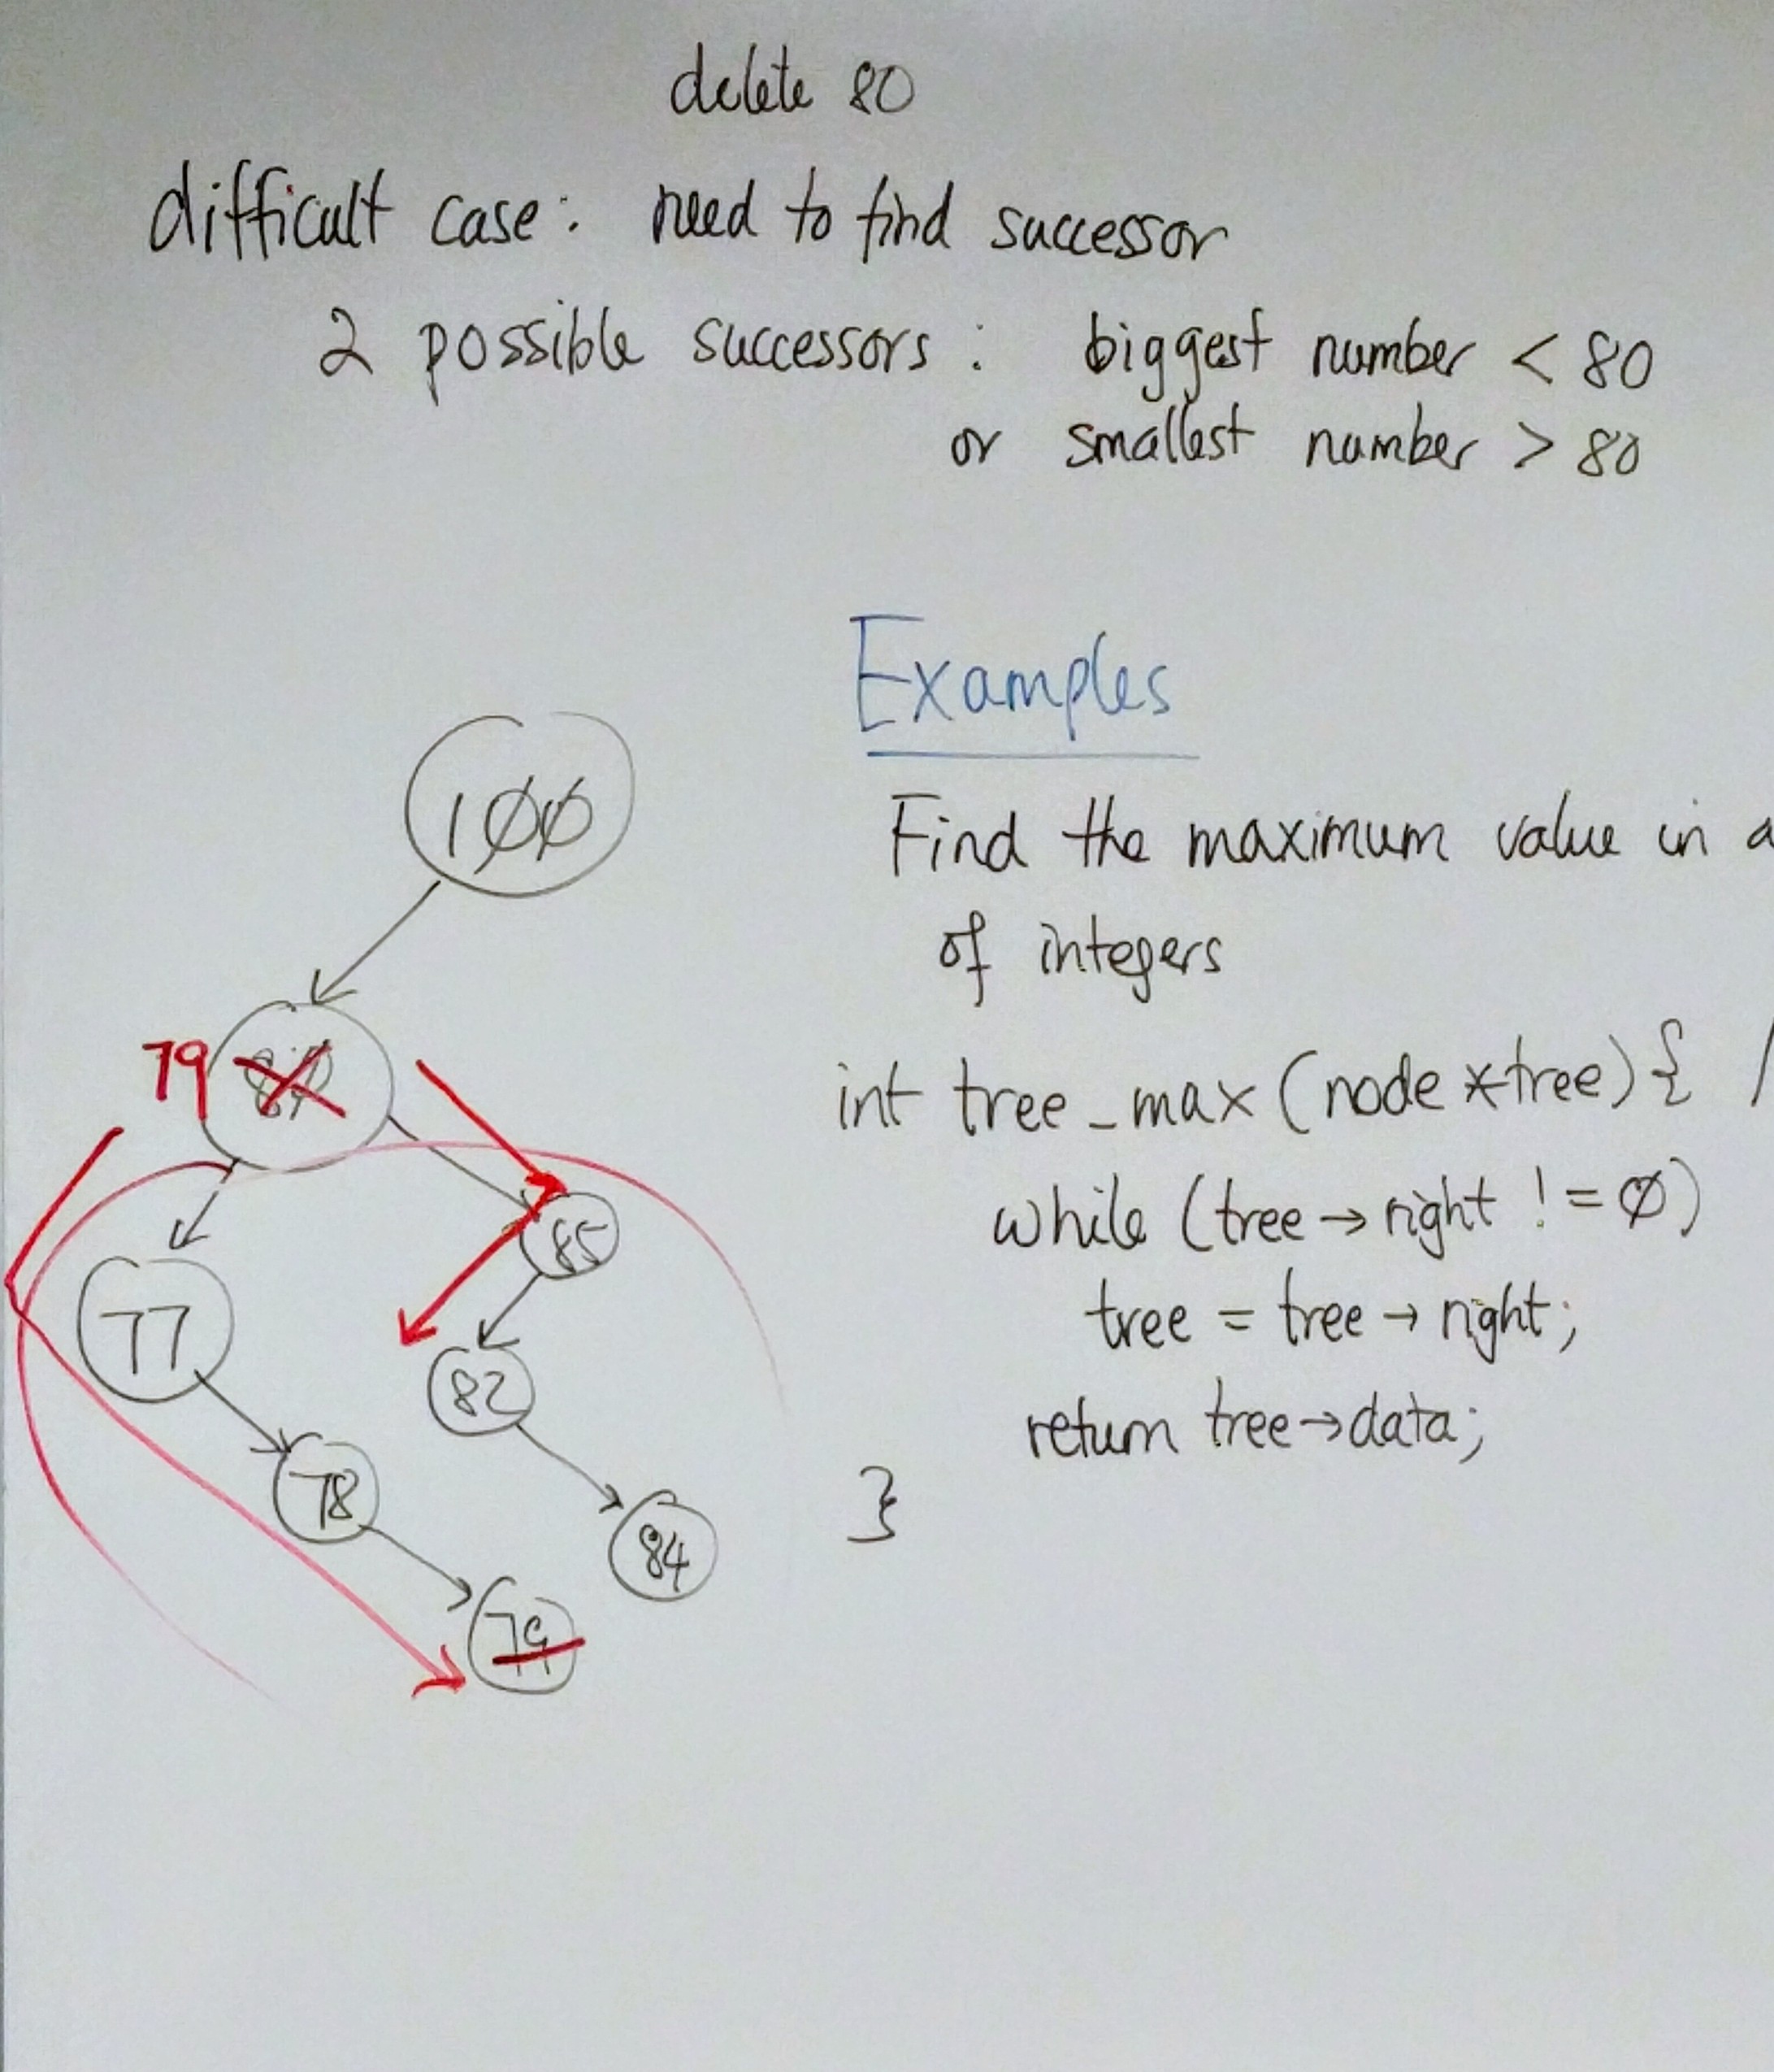 delete 80
difficult case: need to find successor
2 possible successors: biggest number < 80
or smallest number > 80
Examples
Find the maximum value in a
of integers
int tree_max (node *tree) { /
while (tree → right != Ø)
tree = tree → right;
return tree → data;
}
100
79 80
85
77
82
78
84
79